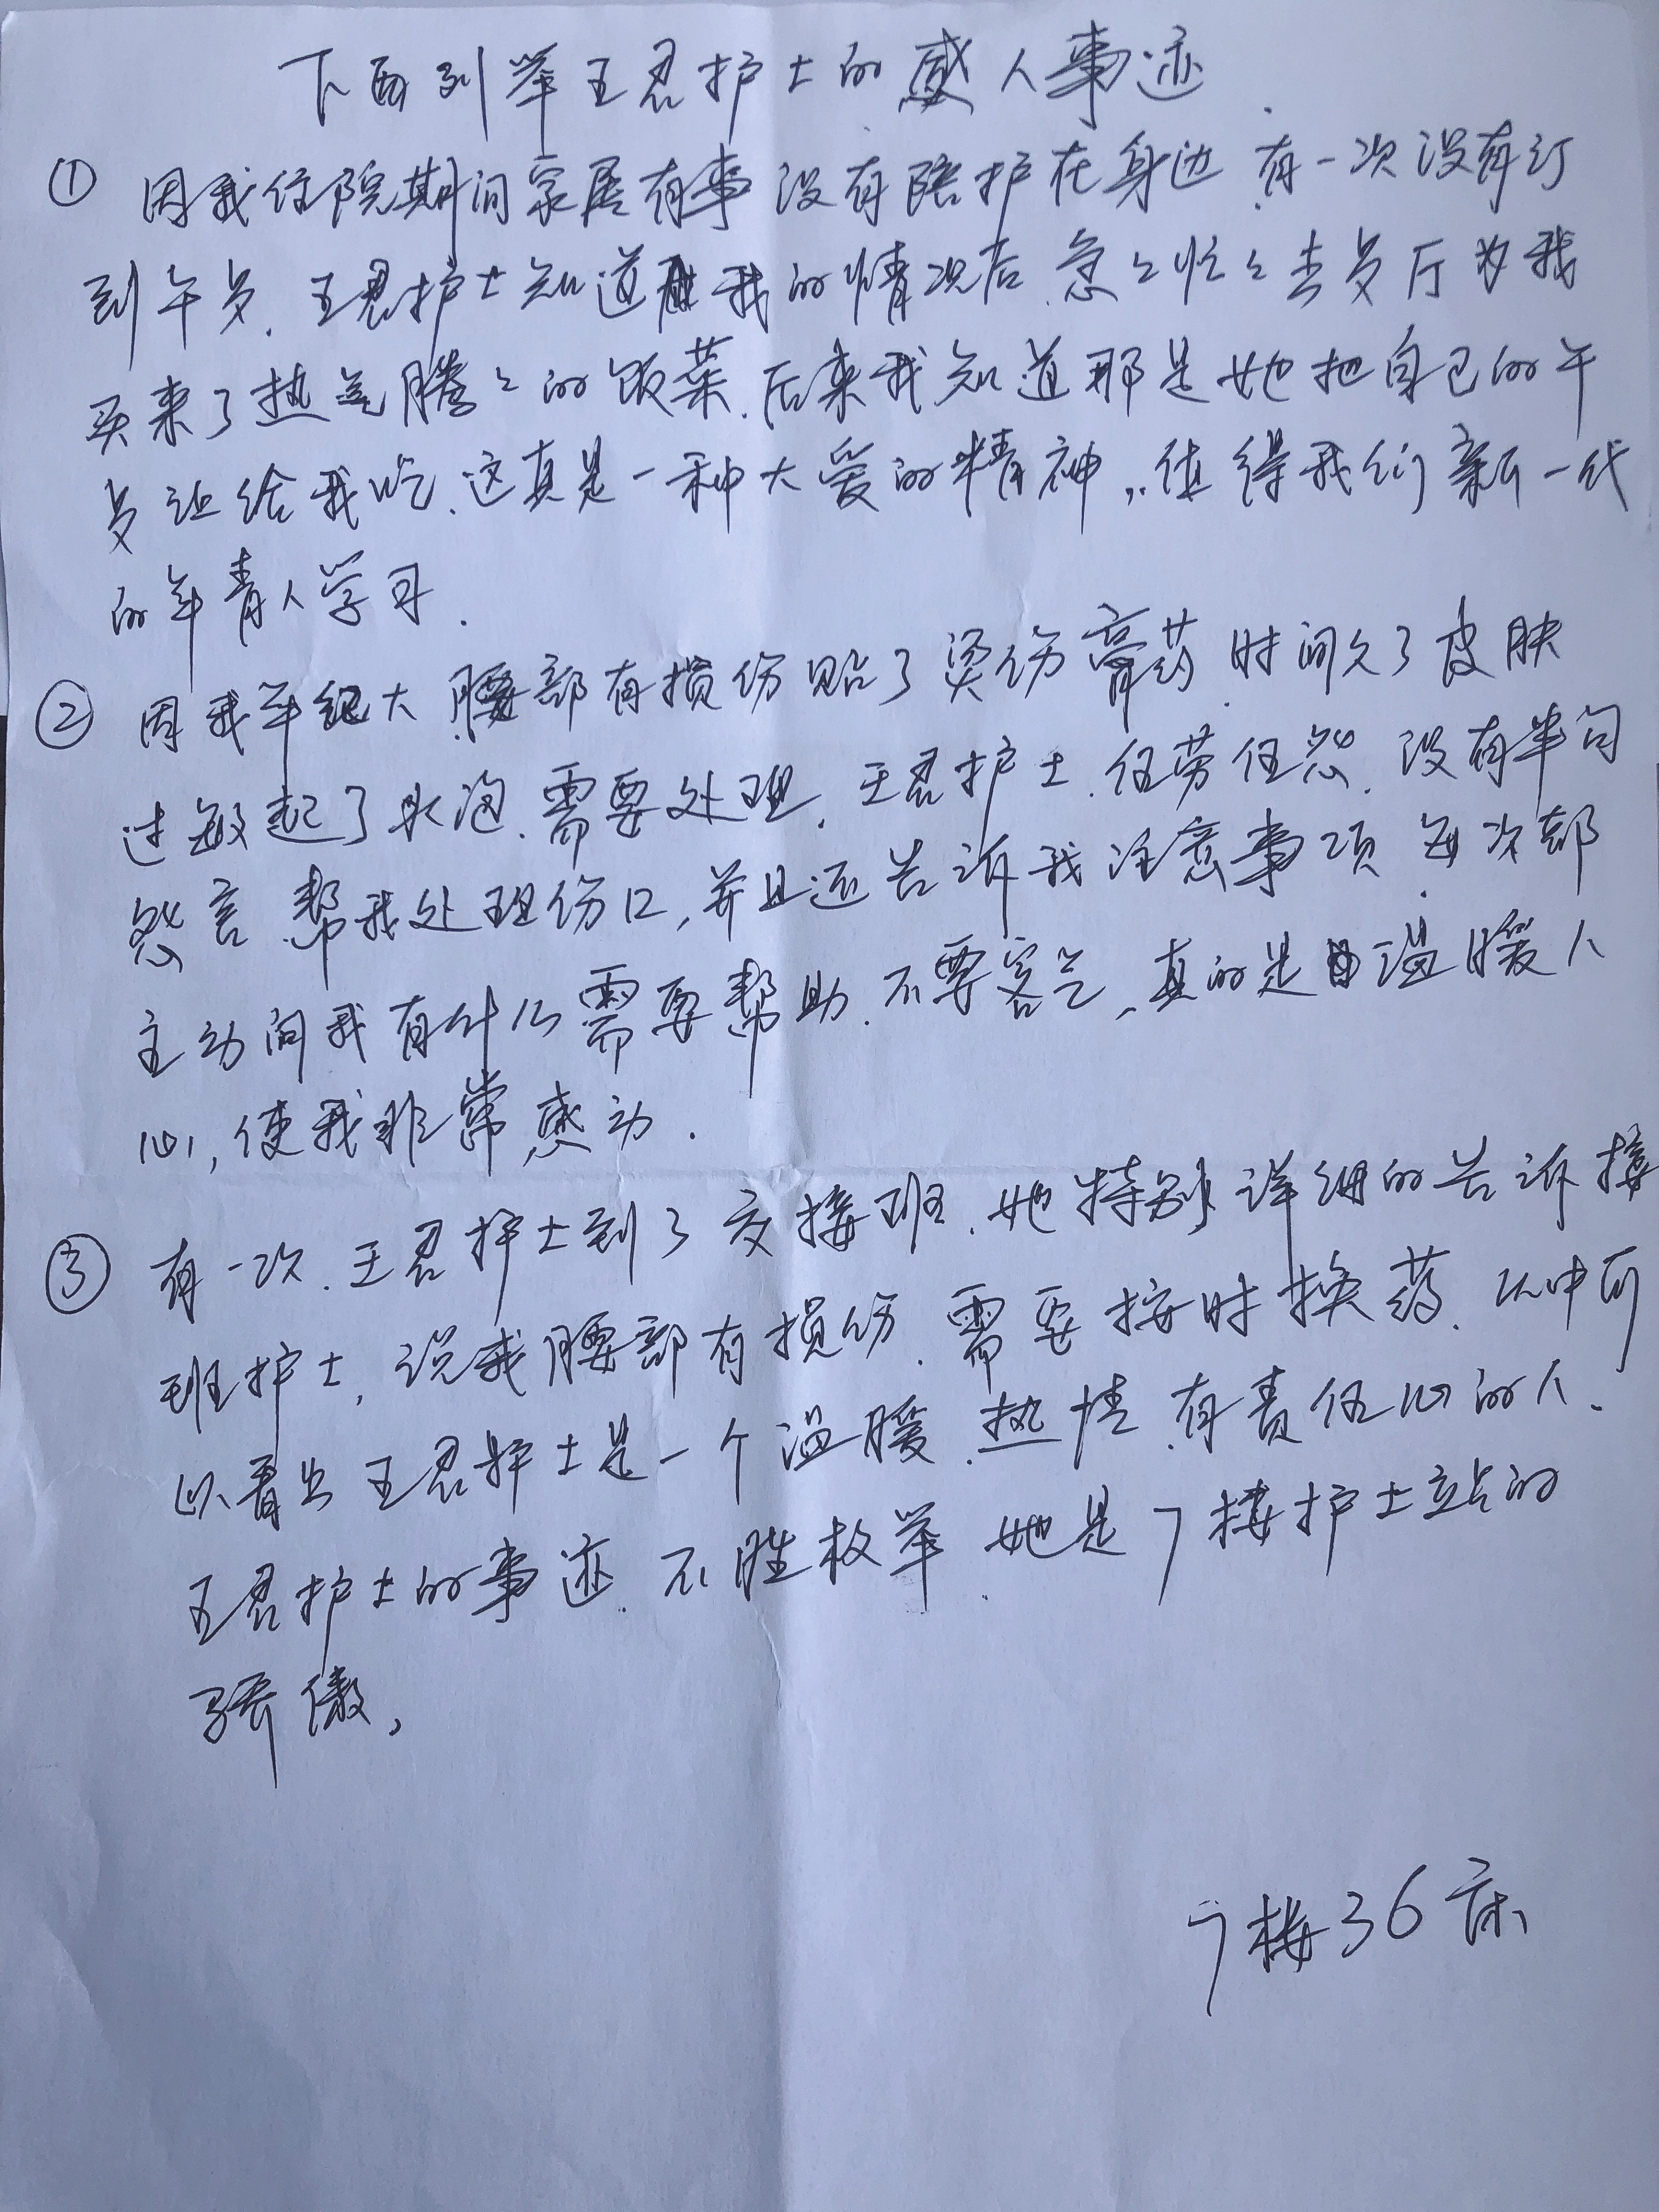 下面列举王君护士的感人事迹.
① 因我住院期间家属有事没有陪护在身边.有一次没有订
到午歺.王君护士知道我的情况后.急々忙々去歺厅为我
买来了热气腾々的饭菜.后来我知道那是她把自己的午
歺让给我吃.这真是一种大爱的精神,.值得我们新一代
的年青人学习.
② 因我年纪大.腰部有损伤贴了烫伤膏药.时间久了皮肤
过敏起了水泡.需要处理.王君护士.任劳任怨.没有半句
怨言.帮我处理伤口,并且还告诉我注意事项.每次都
主动问我有什么需要帮助.不要客气,真的是温暖人
心,使我非常感动.
③ 有一次.王君护士到了交接班.她特别详细的告诉接
班护士,说我腰部有损伤.需要按时换药.从中可
以看出王君护士是一个温暖.热情.有责任心的人.
王君护士的事迹.不胜枚举.她是7楼护士站的
骄傲,
7楼36床